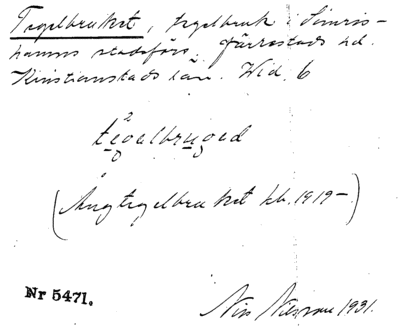 Tegelbruket, tegelbruk i Simris-
hamns stadsförs. Järrestads hd.
Kristianstads län. Wid. 6
tegelbruged
(Ångtegelbruket kb. 1919-)
Nr 5471.
Nils Nilsson 1931.